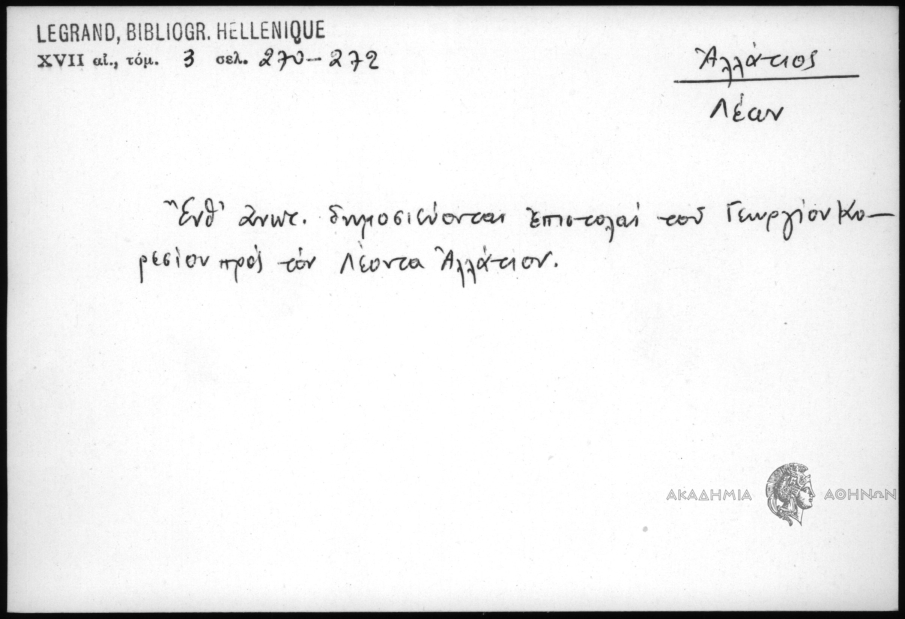 LEGRAND, BIBLIOGR. HELLENIQUE
XVII αἰ., τόμ. 3 σελ. 270-272
Ἀλλάτιος
Λέων
Ἔνθ' ἄνωτ. δημοσιεύονται ἐπιστολαὶ τοῦ Γεωργίου Κο-
ρεσίου πρὸς τὸν Λέοντα Ἀλλάτιον.
ΑΚΑΔΗΜΙΑ ΑΘΗΝΩΝ